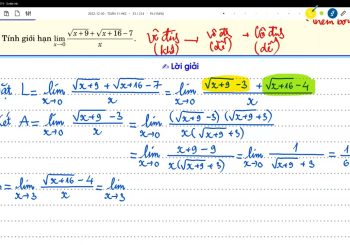 Tính giới hạn lim x→0 (√x+9 + √x+16 − 7)/x.
vô định (khó) → vô định (dễ) → Có định (dễ)
Lời giải
Đặt L = lim x→0 (√x+9 + √x+16 − 7)/x = lim x→0 (√x+9 − 3 + √x+16 − 4)/x
Xét A = lim x→0 (√x+9 − 3)/x = lim x→0 (√x+9 − 3)(√x+9 + 3)/x(√x+9 + 3)
= lim x→0 (x+9 − 9)/x(√x+9 + 3) = lim x→0 1/(√x+9 + 3) = 1/6
= lim x→3 (√x+16 − 4)/x = lim x→3